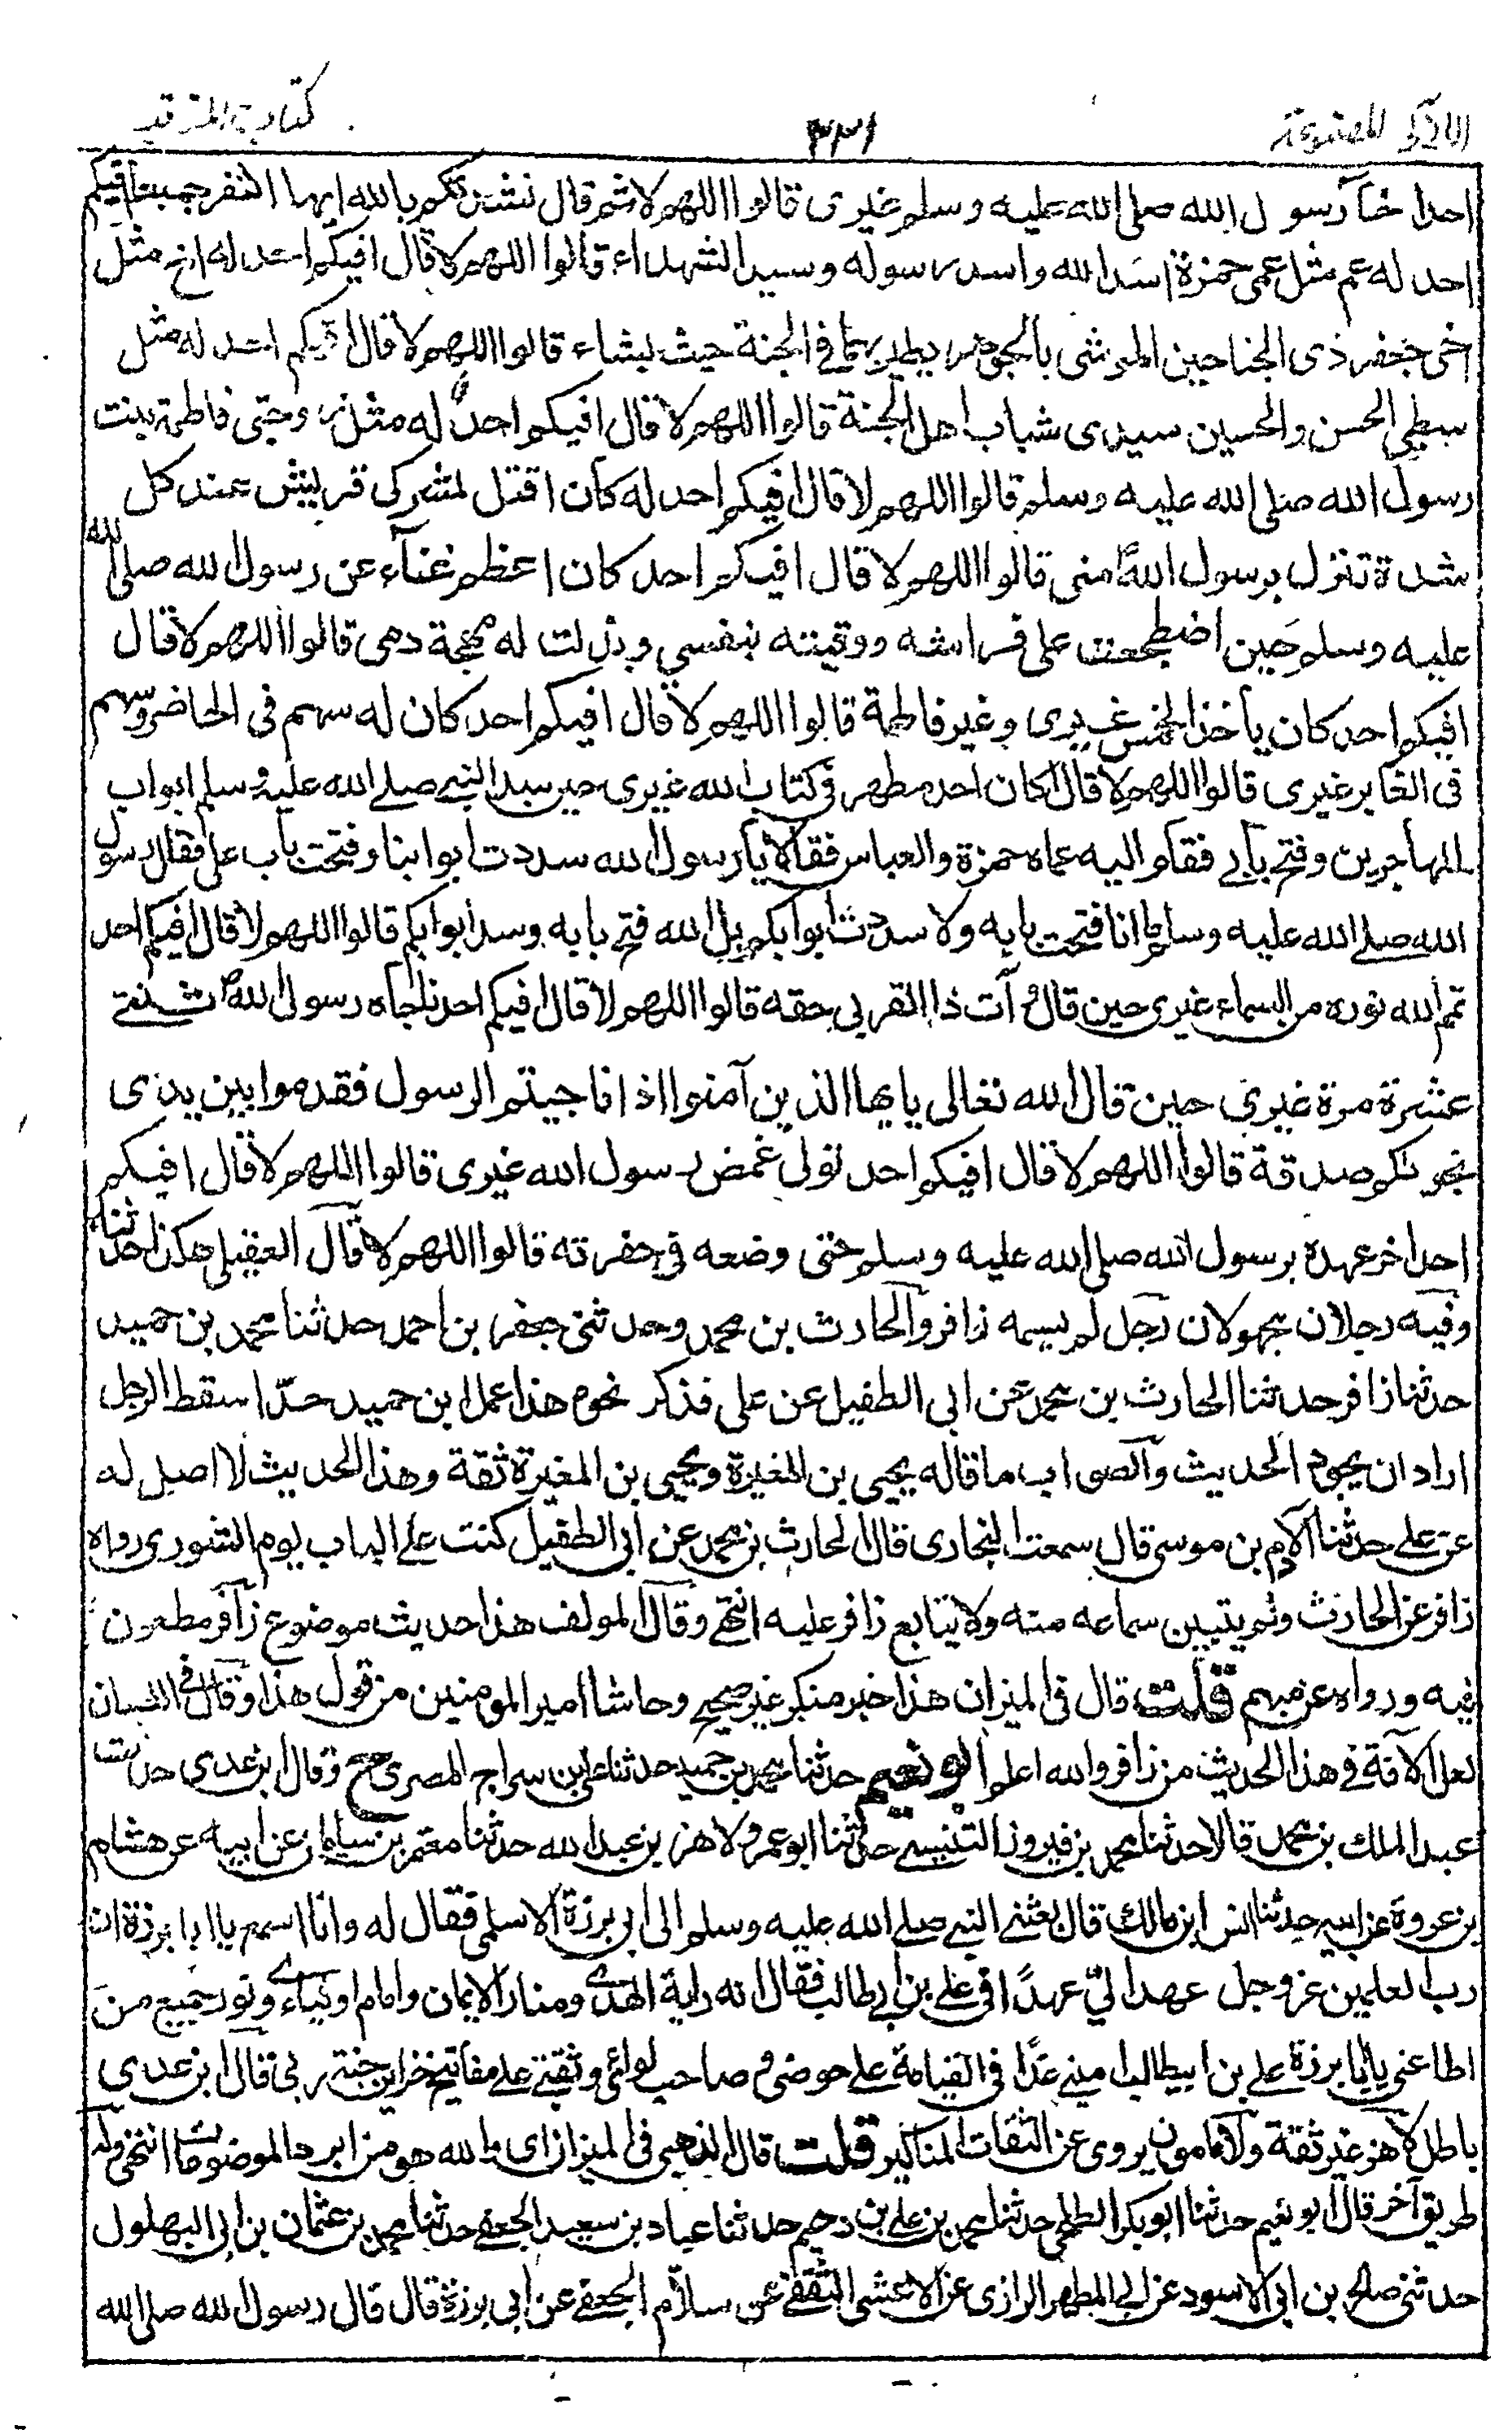 اللآلى المصنوعة ٣٣١ كتاب المناقب
احدا خا رسول الله صلى الله عليه وسلم غيرى قالوا اللهم لا ثم قال ننشدتكم بالله ايها النفر جميعا افيكم
احد له عم مثل عمى حمزة اسد الله واسد رسوله وسيد الشهداء قالوا اللهم لا قال افيكم احد له اخ مثل
اخى جعفر ذى الجناحين الموشى بالجوهر يطير بهما فى الجنة حيث يشاء قالوا اللهم لا قال افيكم احد له مثل
سبطى الحسن والحسين سيدى شباب اهل الجنة قالوا اللهم لا قال افيكم احد له مثل زوجتى فاطمة بنت
رسول الله صلى الله عليه وسلم قالوا اللهم لا قال افيكم احد له كان اقتل لمشركى قريش عند كل
شدة تنزل برسول الله منى قالوا اللهم لا قال افيكم احد كان اعظم غناء عن رسول الله صلى الله
عليه وسلم حين اضطجعت على فراشه ووقيته بنفسي وبذلت له مهجة دمى قالوا اللهم لا قال
افيكم احد كان يأخذ الخمس غيرى وغير فاطمة قالوا اللهم لا قال افيكم احد كان له سهم فى الحاضر وسهم
فى الغابر غيرى قالوا اللهم لا قال اكان احد مطهر فى كتاب الله غيرى حين سد النبى صلى الله عليه وسلم ابواب
المهاجرين وفتح بابى فقام اليه عماه حمزة والعباس فقالا يا رسول الله سددت ابوابنا وفتحت باب على فقال رسول
الله صلى الله عليه وسلم ما انا فتحت بابه ولا سددت ابوابكم بل الله فتح بابه وسد ابوابكم قالوا اللهم لا قال افيكم احد
تمم الله نوره من السماء غيرى حين قال وآت ذا القربى حقه قالوا اللهم لا قال افيكم احد ناجاه رسول الله ثنتى
عشرة مرة غيرى حين قال الله تعالى يايها الذين آمنوا اذا ناجيتم الرسول فقدموا بين يدى
نجوىكم صدقة قالوا اللهم لا قال افيكم احد تولى غمض رسول الله غيرى قالوا اللهم لا قال افيكم
احد اخر عهده برسول الله صلى الله عليه وسلم حتى وضعه فى حفرته قالوا اللهم لا قال العقيلى هكذا حدثناه
وفيه رجلان مجهولان رجل لم يسمه زافر والحارث بن محمد وحدثنى جعفر بن احمد حدثنا محمد بن حميد
حدثنا زافر حدثنا الحارث بن محمد عن ابى الطفيل عن على فذكر نحوه هذا عمل ابن حميد اسقط الرجل
اراد ان يجود الحديث والصواب ما قاله يحيى بن المغيرة ويحيى بن المغيرة ثقة وهذا الحديث لا اصل له
عن على حدثنا آدم بن موسى قال سمعت البخارى قال الحارث بن محمد عن ابى الطفيل كنت على الباب يوم الشورى رواه
زافر عن الحارث ولم يتبين سماعه منه ولا يتابع زافر عليه انتهى وقال المولف هذا حديث موضوع زافر مطعون
فيه ورواه عن مبهم قلت قال فى الميزان هذا خبر منكر غير صحيح وحاشا امير المومنين من قول هذا وقال فى اللسان
لعل الآفة فى هذا الحديث من زافر والله اعلم ابو نعيم حدثنا محمد بن حميد حدثنا على بن سراج المصرى ح وقال ابن عدى حدثنا
عبد الملك بن محمد قالا حدثنا محمد بن فيروز التنيسى حدثنا ابو عمرو لاهز بن عبد الله حدثنا معتمر بن سليمان عن ابيه عن هشام
بن عروة عن ابيه حدثنا انس ابن مالك قال بعثنى النبى صلى الله عليه وسلم الى ابى برزة الاسلمى فقال له وانا اسمع يا ابا برزة ان
رب العلمين عز وجل عهد الىّ عهدًا فى على بن ابى طالب فقال انه راية الهدى ومنار الايمان وامام اوليائى ونور جميع من
اطاعنى يا ابا برزة على بن ابيطالب امينى غدًا فى القيامة على حوضى وصاحب لوائى وثقتى على مفاتيح خزاين جنة ربى قال ابن عدى
باطل لاهز غير ثقة ولا مامون يروى عن الثقات المناكير قلت قال الذهبى فى الميزان اى والله هو من ابرد الموضوعات انتهى وله
طريق آخر قال ابو نعيم حدثنا ابو بكر الطلحى حدثنا محمد بن على بن دحيم حدثنا عباد بن سعيد الجعفى حدثنا محمد بن عثمان بن ابى البهلول
حدثنى صالح بن ابى الاسود عن ابى المطهر الرازى عن الاعشى الثقفى عن سلام الجعفى عن ابى برزة قال قال رسول الله صلى الله